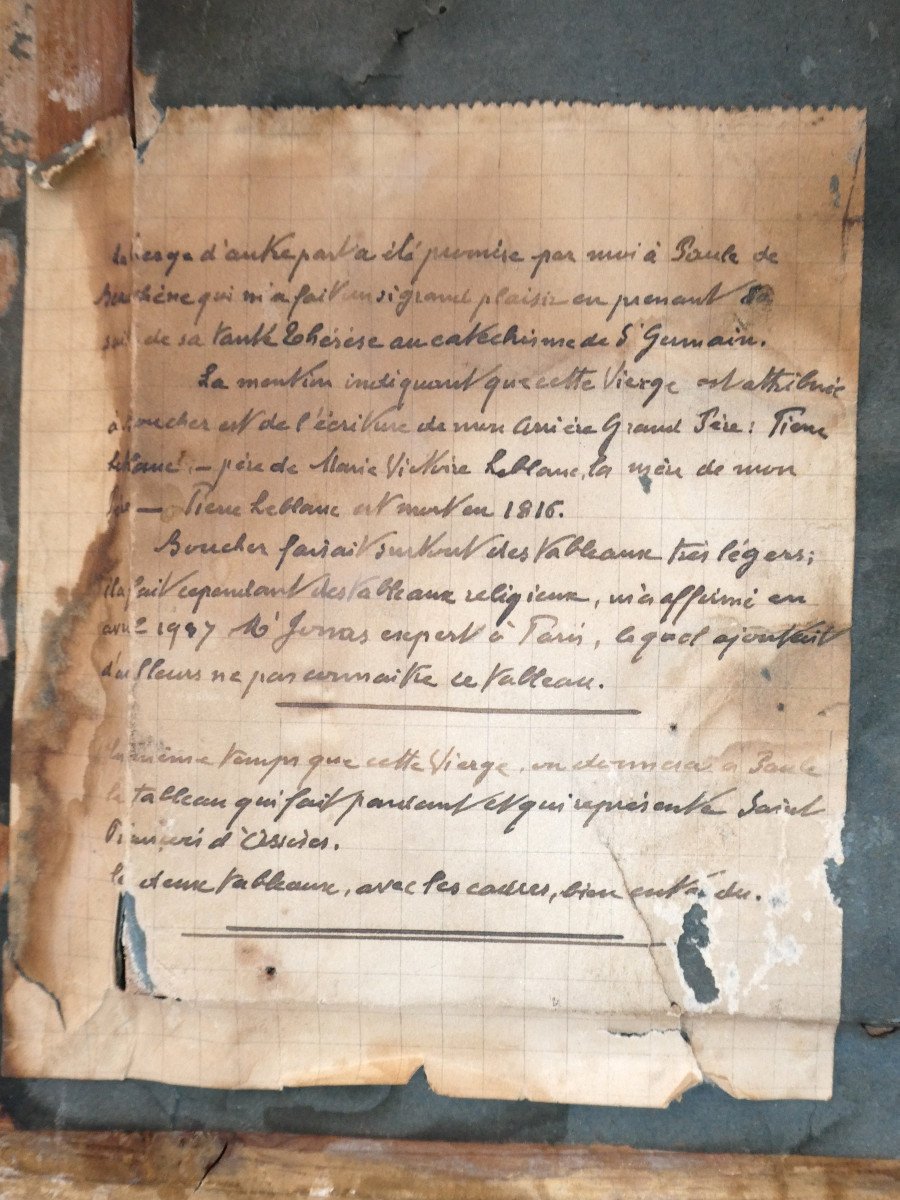 Vierge d'autre part a été promise par moi à Paule de
qui m'a fait un si grand plaisir en prenant
de sa tante Thérèse au catéchisme de St Germain.
La mention indiquant que cette Vierge est attribuée
à Boucher est de l'écriture de mon Arrière Grand Père : Pierre
Leblanc, — père de Marie Victoire Leblanc, la mère de mon
— Pierre Leblanc est mort en 1816.
Boucher faisait surtout des tableaux très légers ;
il a fait cependant des tableaux religieux, m'a affirmé en
avril Mr Jonas expert à Paris, lequel ajoutait
d'ailleurs ne pas connaître ce tableau.
En même temps que cette Vierge, on donnera à Paule
le tableau qui fait pendant et qui représente Saint
François d'Assises.
les deux tableaux, avec les cadres, bien entendu.